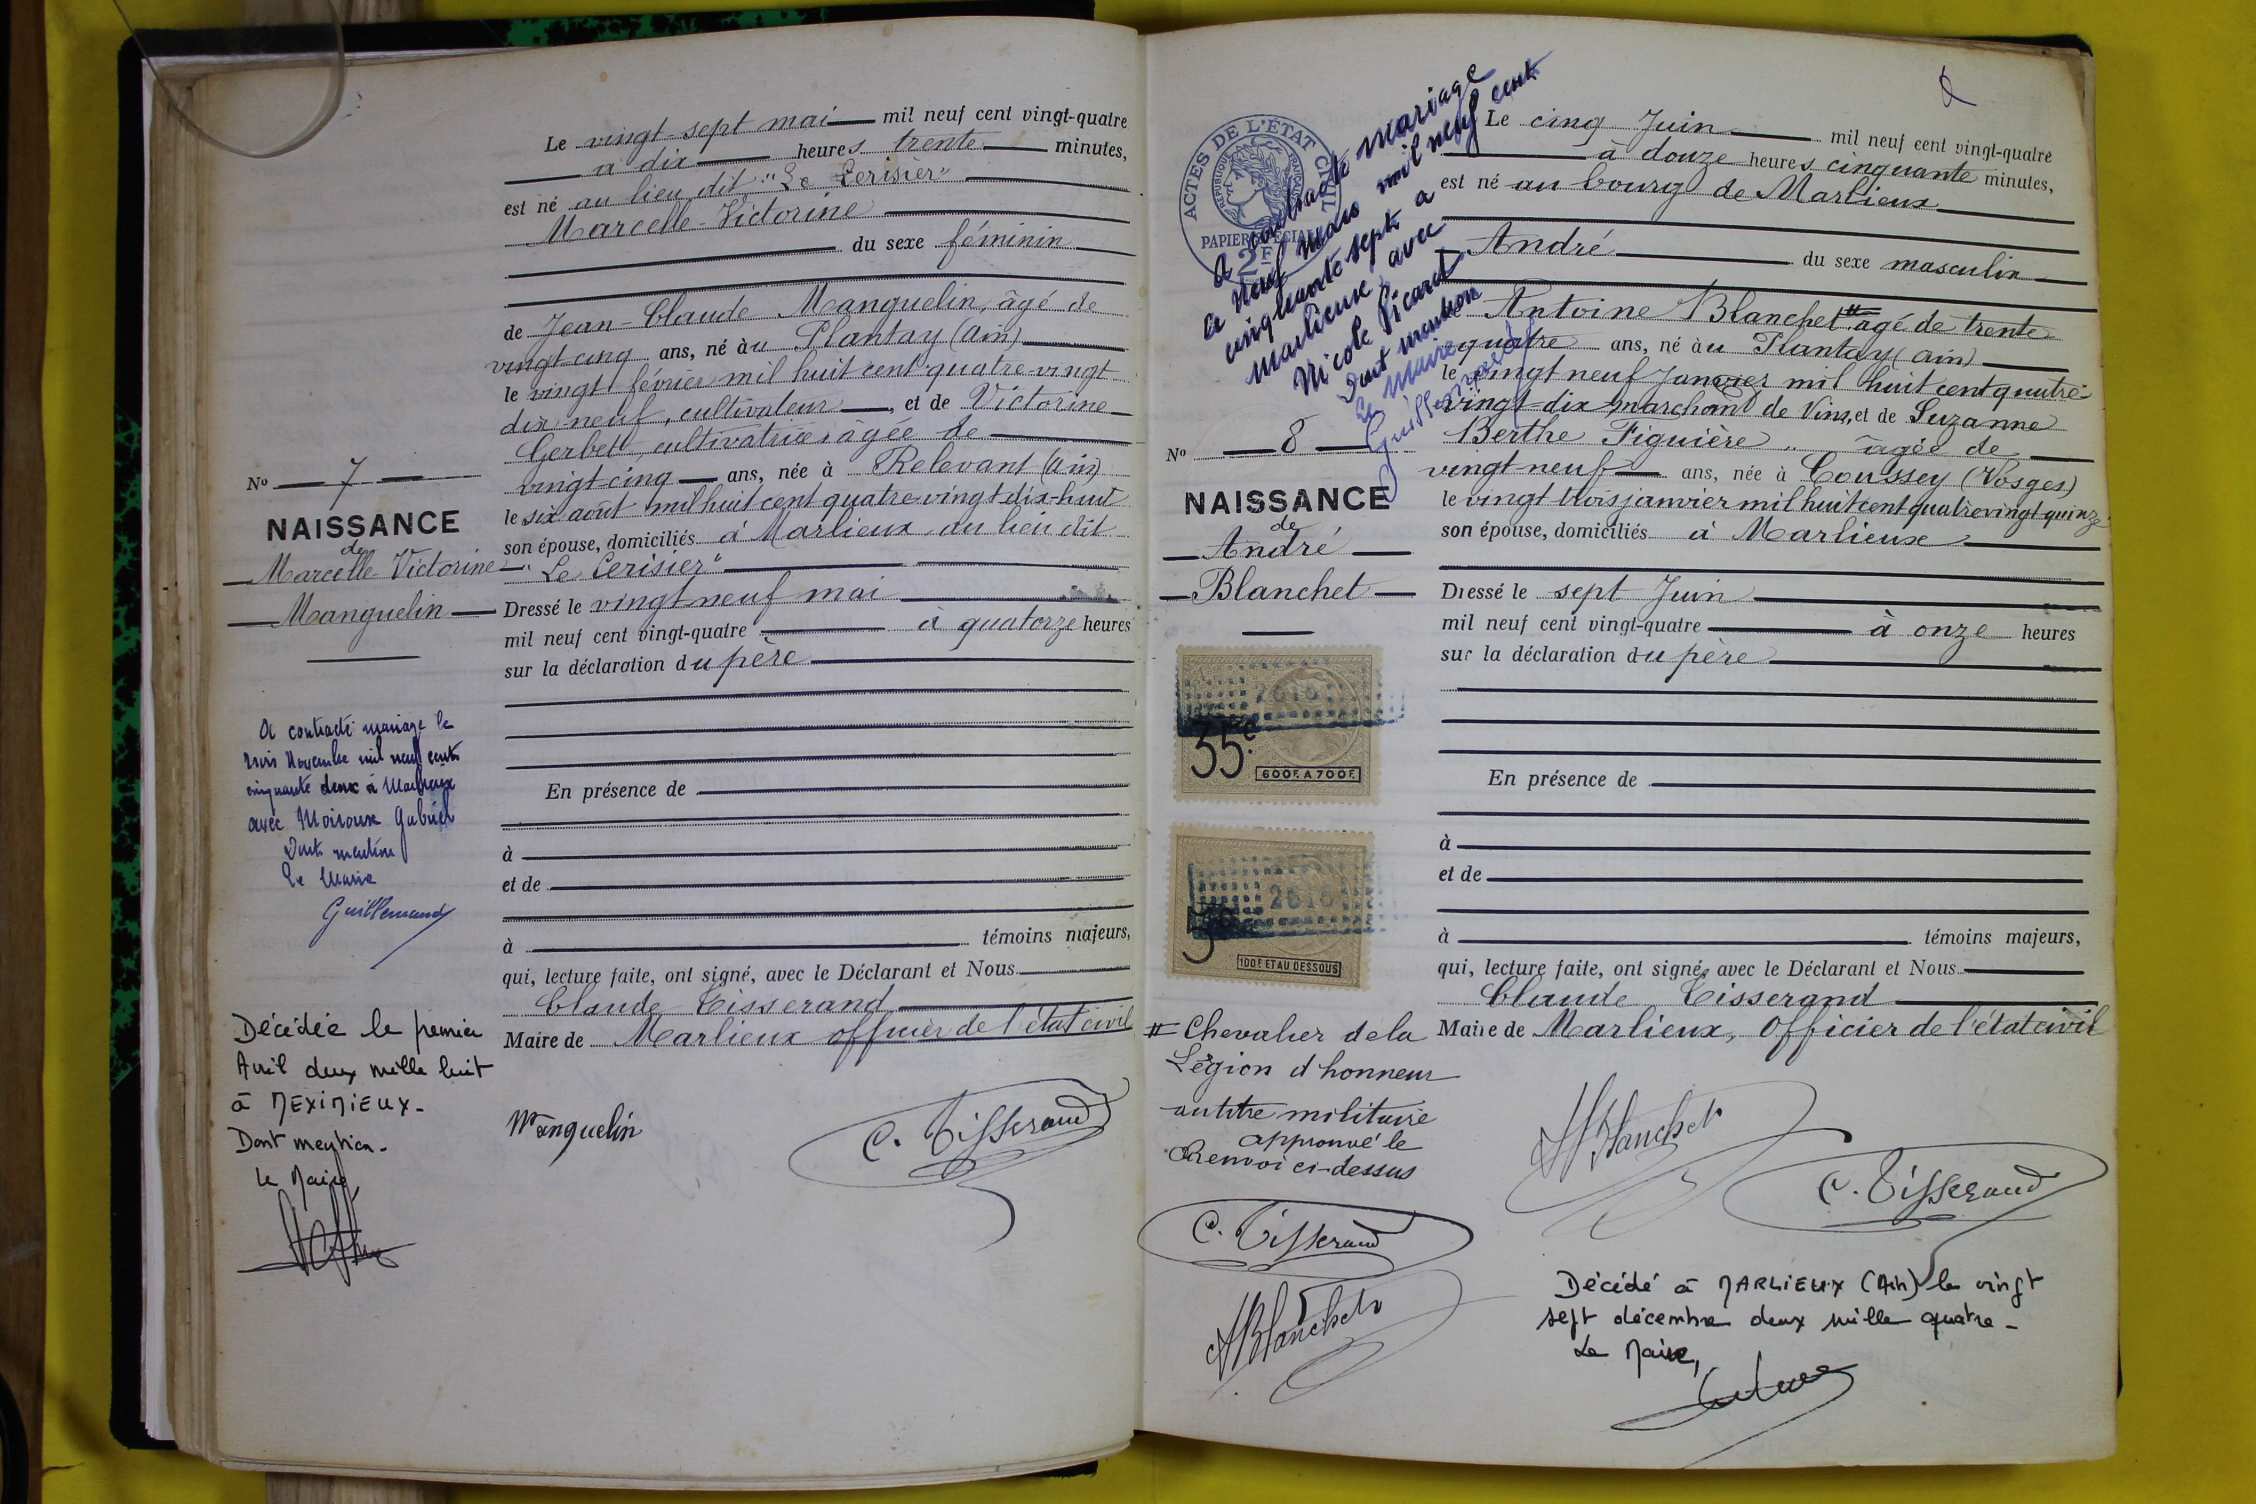 Le vingt-sept mai mil neuf cent vingt-quatre
à dix heures trente minutes,
est né au lieu dit "Le Cerisier"
Marcelle-Victorine
du sexe féminin
de Jean-Claude Manguelin, âgé de
vingt-cinq ans, né àu Plantay (Ain)
le vingt février mil huit cent quatre-vingt
dix-neuf, cultivateur, et de Victorine
Gerbell, cultivatrice, âgée de
vingt-cinq ans, née à Relevant (Ain)
le six août mil huit cent quatre-vingt dix-huit
son épouse, domiciliés à Marlieux au lieu dit
"Le Cerisier"
Dressé le vingt neuf mai
mil neuf cent vingt-quatre à quatorze heures
sur la déclaration du père
En présence de
à
et de
à témoins majeurs,
qui, lecture faite, ont signé, avec le Déclarant et Nous
Claude Tisserand
Maire de Marlieux officier de l'état civil
Manguelin
C. Tisserand
No 7
NAISSANCE
de
Marcelle Victorine
Manguelin
A contracté mariage le
trois Novembre mil neuf cent
cinquante deux à Marlieux
avec Moiroux Gabriel
Dont mention
Le Maire
Guillemaud
Décédée le premier
Avril deux mille huit
à MEXIMIEUX-
Dont mention-
Le Maire,
ACTES DE L'ÉTAT CIVIL
RÉPUBLIQUE FRANÇAISE
PAPIER SPÉCIAL
2F
A contracté mariage
le neuf mars mil neuf cent
cinquante sept à
Marlieux, avec
Nicole Picard
Dont mention
Le Maire
No 8
NAISSANCE
de
André
Blanchet
2616
35c
600F. A 700F.
2616
100F. ET AU DESSOUS
# Chevalier de la
Légion d'honneur
au titre militaire
approuvé le
Renvoi ci-dessus
C. Tisserand
Blanchet
Le cinq Juin mil neuf cent vingt-quatre
à douze heures cinquante minutes,
est né au bourg de Marlieux
André du sexe masculin
Antoine Blanchet # âgé de trente
quatre ans, né àu Plantay (Ain)
le vingt neuf Janvier mil huit cent quatre-
vingt-dix marchand de Vins, et de Suzanne
Berthe Figuière âgée de
vingt neuf ans, née à Coussey (Vosges)
le vingt trois janvier mil huit cent quatre vingt quinze
son épouse, domiciliés à Marlieux
Dressé le sept Juin
mil neuf cent vingt-quatre à onze heures
sur la déclaration du père
En présence de
à
et de
à témoins majeurs,
qui, lecture faite, ont signé, avec le Déclarant et Nous
Claude Tisserand
Maire de Marlieux, Officier de l'état civil
Blanchet
C. Tisserand
Décédé à MARLIEUX (Ain) le vingt
sept décembre deux mille quatre-
Le Maire,